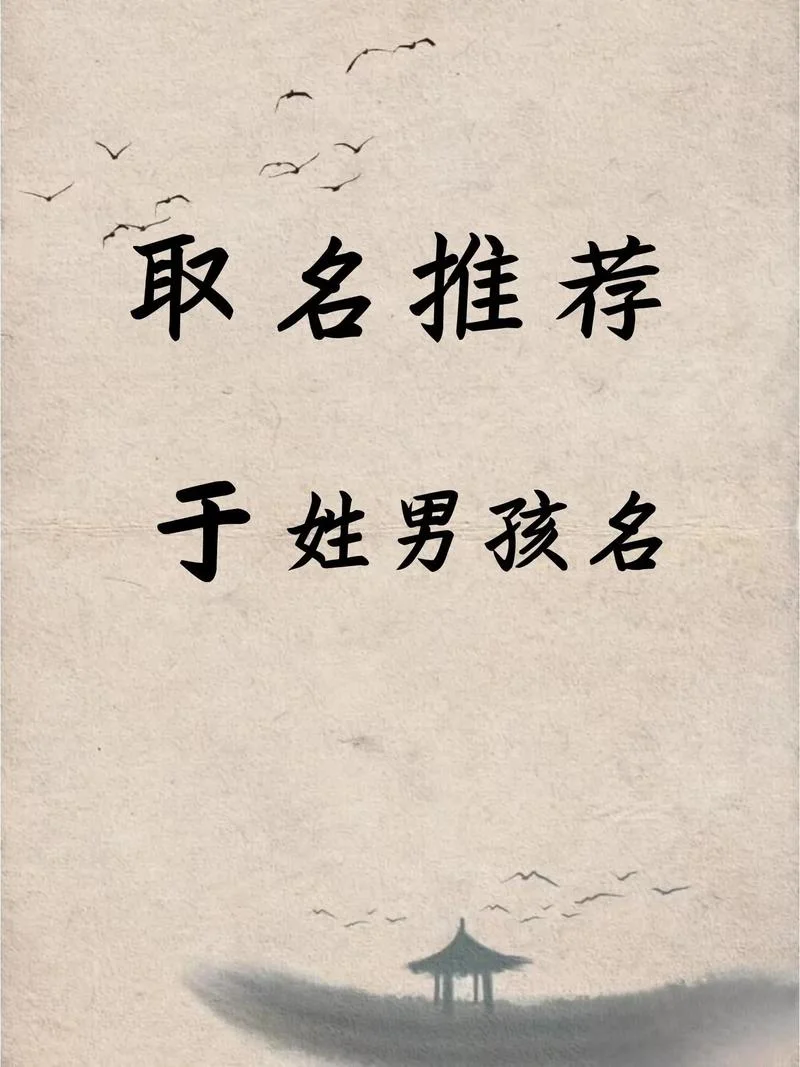 取名推荐
于姓男孩名